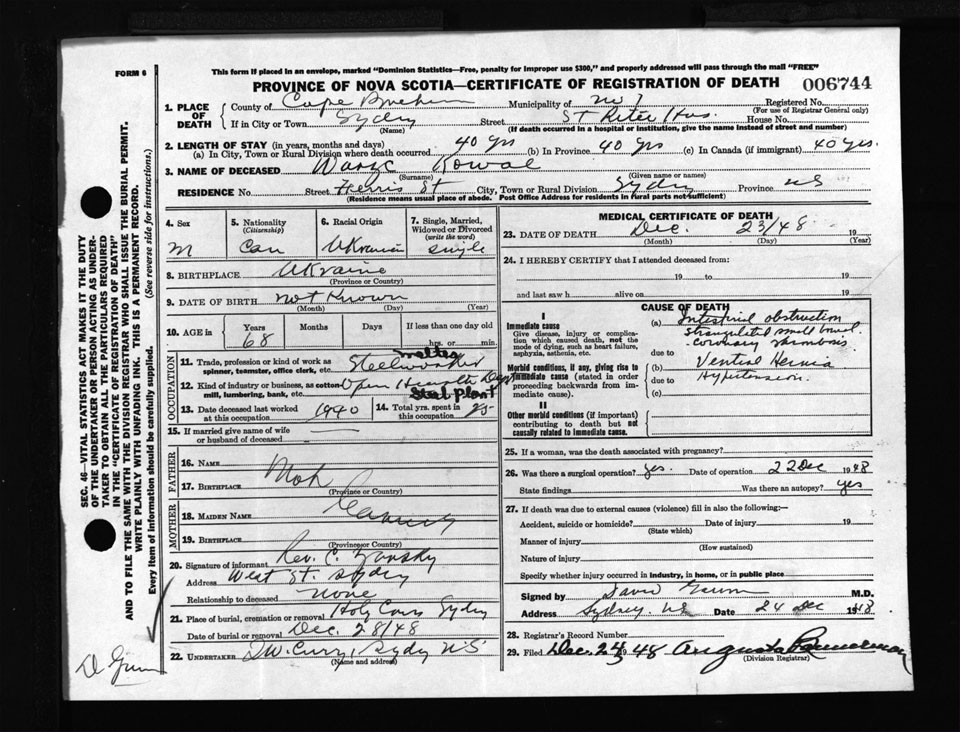 FORM 6
This form if placed in an envelope, marked "Dominion Statistics—Free, penalty for improper use $300," and properly addressed will pass through the mail "FREE"
PROVINCE OF NOVA SCOTIA—CERTIFICATE OF REGISTRATION OF DEATH
006744
1. PLACE OF DEATH
County of Cape Breton Municipality of No 7 Registered No.
(For use of Registrar General only)
If in City or Town Sydney Street St Hos. House No.
(Name) (If death occurred in a hospital or institution, give the name instead of street and number)
2. LENGTH OF STAY (in years, months and days)
(a) In City, Town or Rural Division where death occurred 40 yrs (b) In Province 40 yrs (c) In Canada (if immigrant) 40 yrs.
3. NAME OF DECEASED Kowal
(Surname) (Given name or names)
RESIDENCE No. Street St City, Town or Rural Division Sydney Province NS
(Residence means usual place of abode. Post Office Address for residents in rural parts not sufficient)
4. Sex
M
5. Nationality
(Citizenship)
Can
6. Racial Origin
Ukranian
7. Single, Married, Widowed or Divorced
(write the word)
single
8. BIRTHPLACE Ukraine
(Province or Country)
9. DATE OF BIRTH not Known
(Month) (Day) (Year)
10. AGE in Years Months Days If less than one day old
68 hrs. or min.
OCCUPATION
11. Trade, profession or kind of work as spinner, teamster, office clerk, etc. Steelworker melter
12. Kind of industry or business, as cotton mill, lumbering, bank, etc. Open Hearth Dept Steel Plant
13. Date deceased last worked at this occupation 1940
14. Total yrs. spent in this occupation 25
15. If married give name of wife or husband of deceased —
FATHER
16. NAME
17. BIRTHPLACE
(Province or Country)
MOTHER
18. MAIDEN NAME
19. BIRTHPLACE
(Province or Country)
Not
20. Signature of informant Rev. C.
Address West St. Sydney
Relationship to deceased none
21. Place of burial, cremation or removal Holy Cross Sydney
Date of burial or removal Dec. 28/48
22. UNDERTAKER D.W. Curry, Sydney NS
(Name and address)
MEDICAL CERTIFICATE OF DEATH
23. DATE OF DEATH Dec. 23/48 19
(Month) (Day) (Year)
24. I HEREBY CERTIFY that I attended deceased from:
19 to 19
and last saw h alive on 19
CAUSE OF DEATH
I
Immediate cause
Give disease, injury or complication which caused death, not the mode of dying, such as heart failure, asphyxia, asthenia, etc.
(a) Intestinal obstruction
Strangulated small bowel
coronary thrombosis
due to
Morbid conditions, if any, giving rise to immediate cause (stated in order proceeding backwards from immediate cause).
(b) Ventral Hernia
due to Hypertension.
(c)
II
Other morbid conditions (if important) contributing to death but not causally related to immediate cause.
25. If a woman, was the death associated with pregnancy?
26. Was there a surgical operation? yes. Date of operation 22 Dec 1948
State findings Was there an autopsy? yes
27. If death was due to external causes (violence) fill in also the following:—
Accident, suicide or homicide? Date of injury 19
(State which)
Manner of injury
(How sustained)
Nature of injury
Specify whether injury occurred in industry, in home, or in public place
Signed by David M.D.
Address Sydney, NS Date 24 Dec 1948
28. Registrar's Record Number
29. Filed Dec. 24 1948 Augusta
(Division Registrar)
SEC. 46—VITAL STATISTICS ACT MAKES IT THE DUTY
OF THE UNDERTAKER OR PERSON ACTING AS UNDER-
TAKER TO OBTAIN ALL THE PARTICULARS REQUIRED
IN THE "CERTIFICATE OF REGISTRATION OF DEATH"
AND TO FILE THE SAME WITH THE DIVISION REGISTRAR WHO SHALL ISSUE THE BURIAL PERMIT.
WRITE PLAINLY WITH UNFADING INK. THIS IS A PERMANENT RECORD.
Every item of information should be carefully supplied. (See reverse side for instructions.)